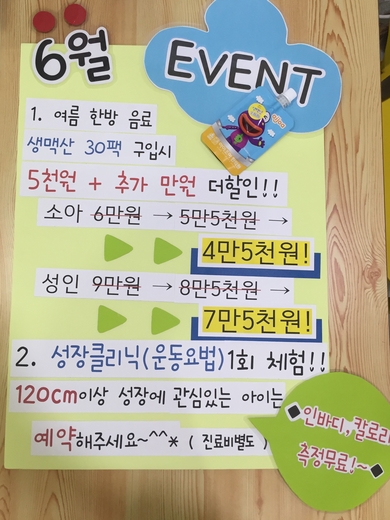 6월
EVENT
1. 여름 한방 음료
생맥산 30팩 구입시
5천원 + 추가 만원 더할인!!
소아 6만원 → 5만5천원 →
4만5천원!
성인 9만원 → 8만5천원 →
7만5천원!
2. 성장클리닉(운동요법)1회 체험!!
120cm이상 성장에 관심있는 아이는
예약해주세요~^^* ( 진료비별도 )
◆인바디, 칼로리
측정무료!~◆